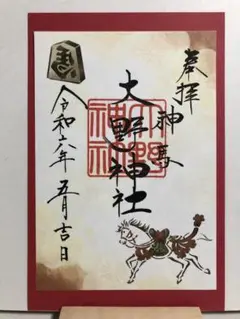 奉拝
神馬
大野神社
令和六年
五月吉日
馬